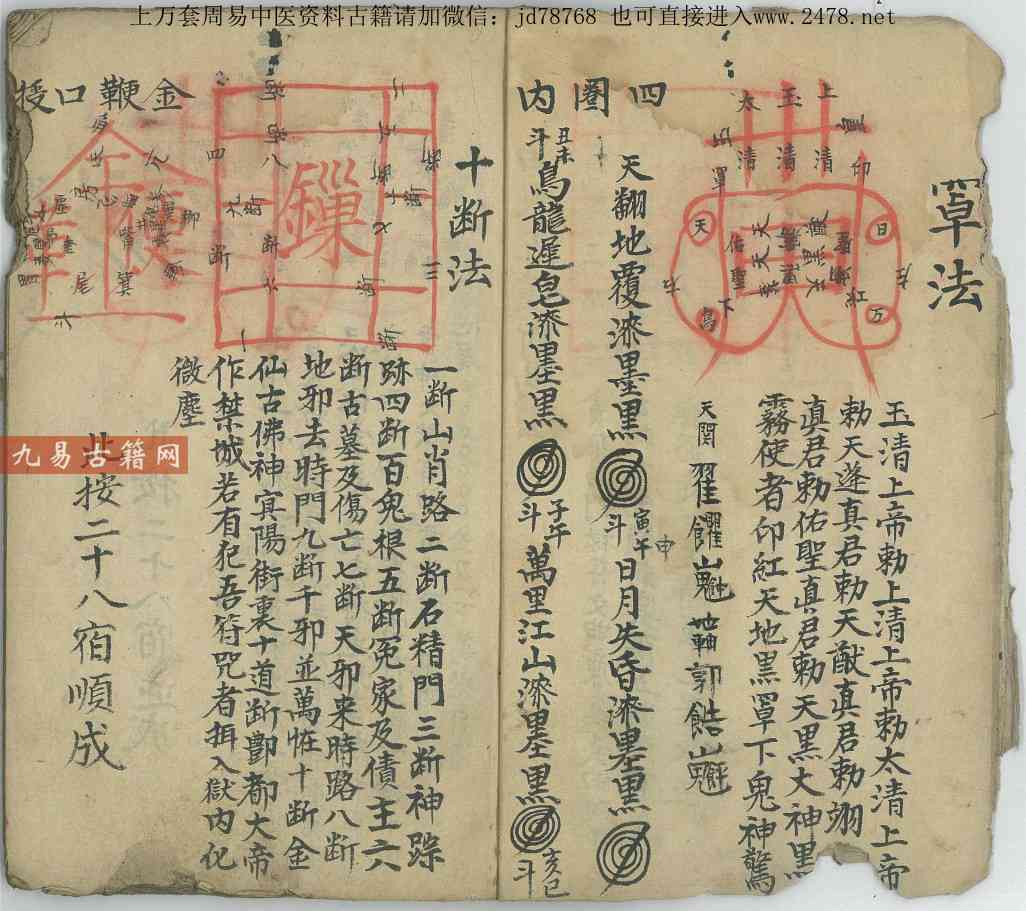 上万套周易中医资料古籍请加微信：jd78768 也可直接进入www.2478.net
罩法
上清
玉清
太清
皇
印
日
天
万
红
下
玉清上帝勅上清上帝勅太清上帝
勅天蓬真君勅天猷真君勅翊
真君勅佑聖真君勅天黑大神黑
霧使者印紅天地黑罩下鬼神驚
天関
地軸郭
四圈内
天翻地覆漆墨黑
斗
寅午
申
日月失昏漆墨黑
丑未
斗
烏龍遅皂漆墨黑
子午
斗
萬里江山漆墨黑
亥巳
斗
十断法
一断山肖路二断石精門三断神踪
跡四断百鬼根五断冤家及債主六
断古墓及傷亡七断天邪来時路八断
地邪去時門九断千邪並萬恠十断金
仙古佛神㝠陽街裏十道断酆都大帝
作禁城若有犯吾符咒者揖入獄内化
微塵
金鞭口授
尾
箕
斗
此按二十八宿順成
九易古籍网